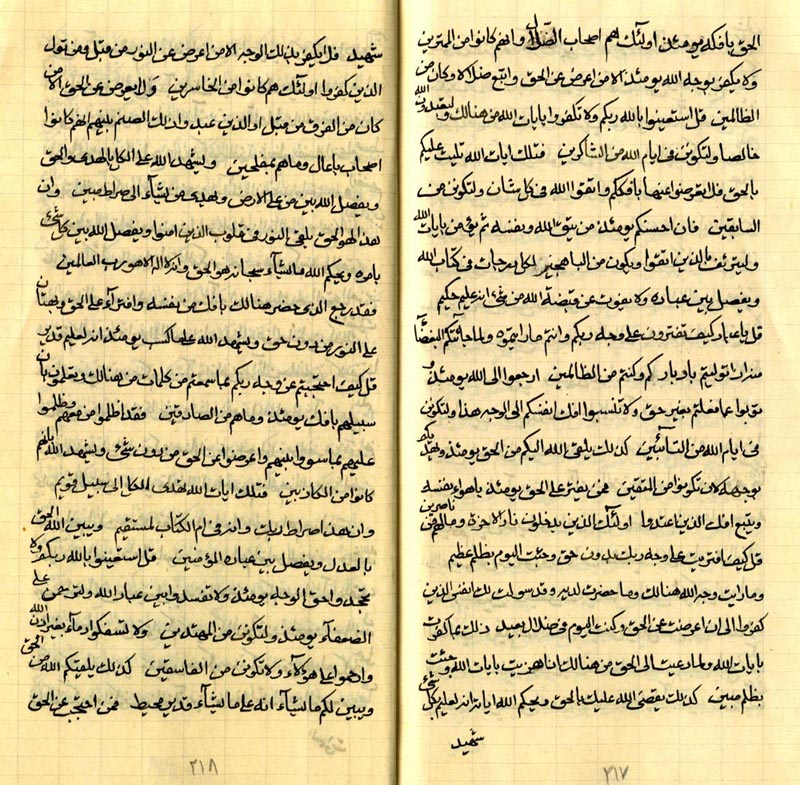 الحق بافكه يومئذ اولئك هم اصحاب الضلال وانهم كانوا من المفترين
ولا يكفر بوجه الله يومئذ الا من اعرض عن الحق واتبع ضلالا وكان من
الظالمين قل استعينوا بالله ربكم ولا تكفروا بايات الله من هنالك
خالصا ولتكونن فى ايام الله من الشاكرين فتلك ايات الله تليت عليكم
بالحق فلا تعرضوا عنها بافككم واتقوا الله فى كل شان ولتكونن من
السابقين فان احسنكم يومئذ من يتق الله وبنفسه ثم يؤمن بايات الله
وليتبع الذين اتقوا ويكون من لكل درجات فى كتاب الله
ويفصل بين عباده ولا يفوت عن قبضة الله من شئ انه عليم حكيم
قل يا عباد كيف تفترون على وجه ربكم وانتم ما رايتموه ولما جائتكم البغضآ
من ان توليتم بادباركم وكنتم من الظالمين ارجعوا الى الله يومئذ و
توبوا عما فعلتم بغير حق ولا تنسبوا افك انفسكم الى الوجه هذا ولتكونن
فى ايام الله من التآئبين كذلك يلقى الله اليكم من الحق يومئذ
بوجهه لان تكونوا من المتقين فمن يفتر على الحق يومئذ باهواء نفسه
ويتبع افك الذين اعتدوا اولئك الذين يدخلون نار الاخرة وما لهم من ناصرين
قل كيف افتريت على وجه ربك بدون حق وجئت اليوم بظلم عظيم
وما رايت وجه الله هنالك وما حضرت لديه وقد سولت لك انفس الذين
كفروا الى ان اعرضت عن الحق وكنت اليوم فى ضلال بعيد ذلك بما كفرت
بايات الله ولما دعيت الى الحق من هنالك بايات الله وجئت
بظلم مبين كذلك يقضى الله عليك بالحق ويحكم الله اياته انه لعليم بكل شئ
شهيد
٢١٧
شهيد قل ا يكفر بذلك الوجه الا من اعرض عن النور من قبل ومن تول
الذين كفروا اولئك هم كانوا من الخاسرين ولا يعرض عن الحق الا من
كان من قبل او الذين عبد وان ذلك الصنم بينهم انهم كانوا
اصحاب باعمال وما هم بمفلحين وليشهد الله على الكل بالهدى والحق
ويفصل الله بين من على الارض ويهدى من يشآء الى صراط مبين وان
هذا لهو الحق يلقى النور فى قلوب الذين امنوا ويفصل الله بين كل شئ
بامره ويحكم الله ما يشآء سبحانه هو الحق وانه لا اله الا هو رب العالمين
فقد رجع الذى حضر هنالك بافك من نفسه وافترآء على الحق وبهتان
على النور من دون حق ويشهد الله على ما كسب يومئذ انه لعليم قدير
قل كيف احتجبتم عن وجه ربكم عما سمعتم من كلمات من هنالك
سبيلهم بافك يومئذ وما هم من الصادقين فقد اظلموا من معهم وظلموا
عليهم واعرضوا عن الحق من دون شئ وليشهد الله بانهم
كانوا من الكاذبين فتلك ايات الله تهدى الكل الى سبيل قويم
وان هذا صراط ربك وانه فى ام الكتاب لمستقيم ويبين الله الحق
بالعدل ويفصل بين عباده المؤمنين قل استعينوا بالله ربكم ولا
الوجه يومئذ ولا تفسدوا بين عباد الله على
الضعفآء يومئذ ولتكونن من المهتدين ولا تسفكوا دمآء بغير اذن الله
وارحموا على هؤلآء ولا تكونن من الفاسقين كذلك يلقيكم الله من الحق
ويبين لكم ما يشآء انه على ما يشآء قدير محيط فمن احتجب عن الحق
٢١٨